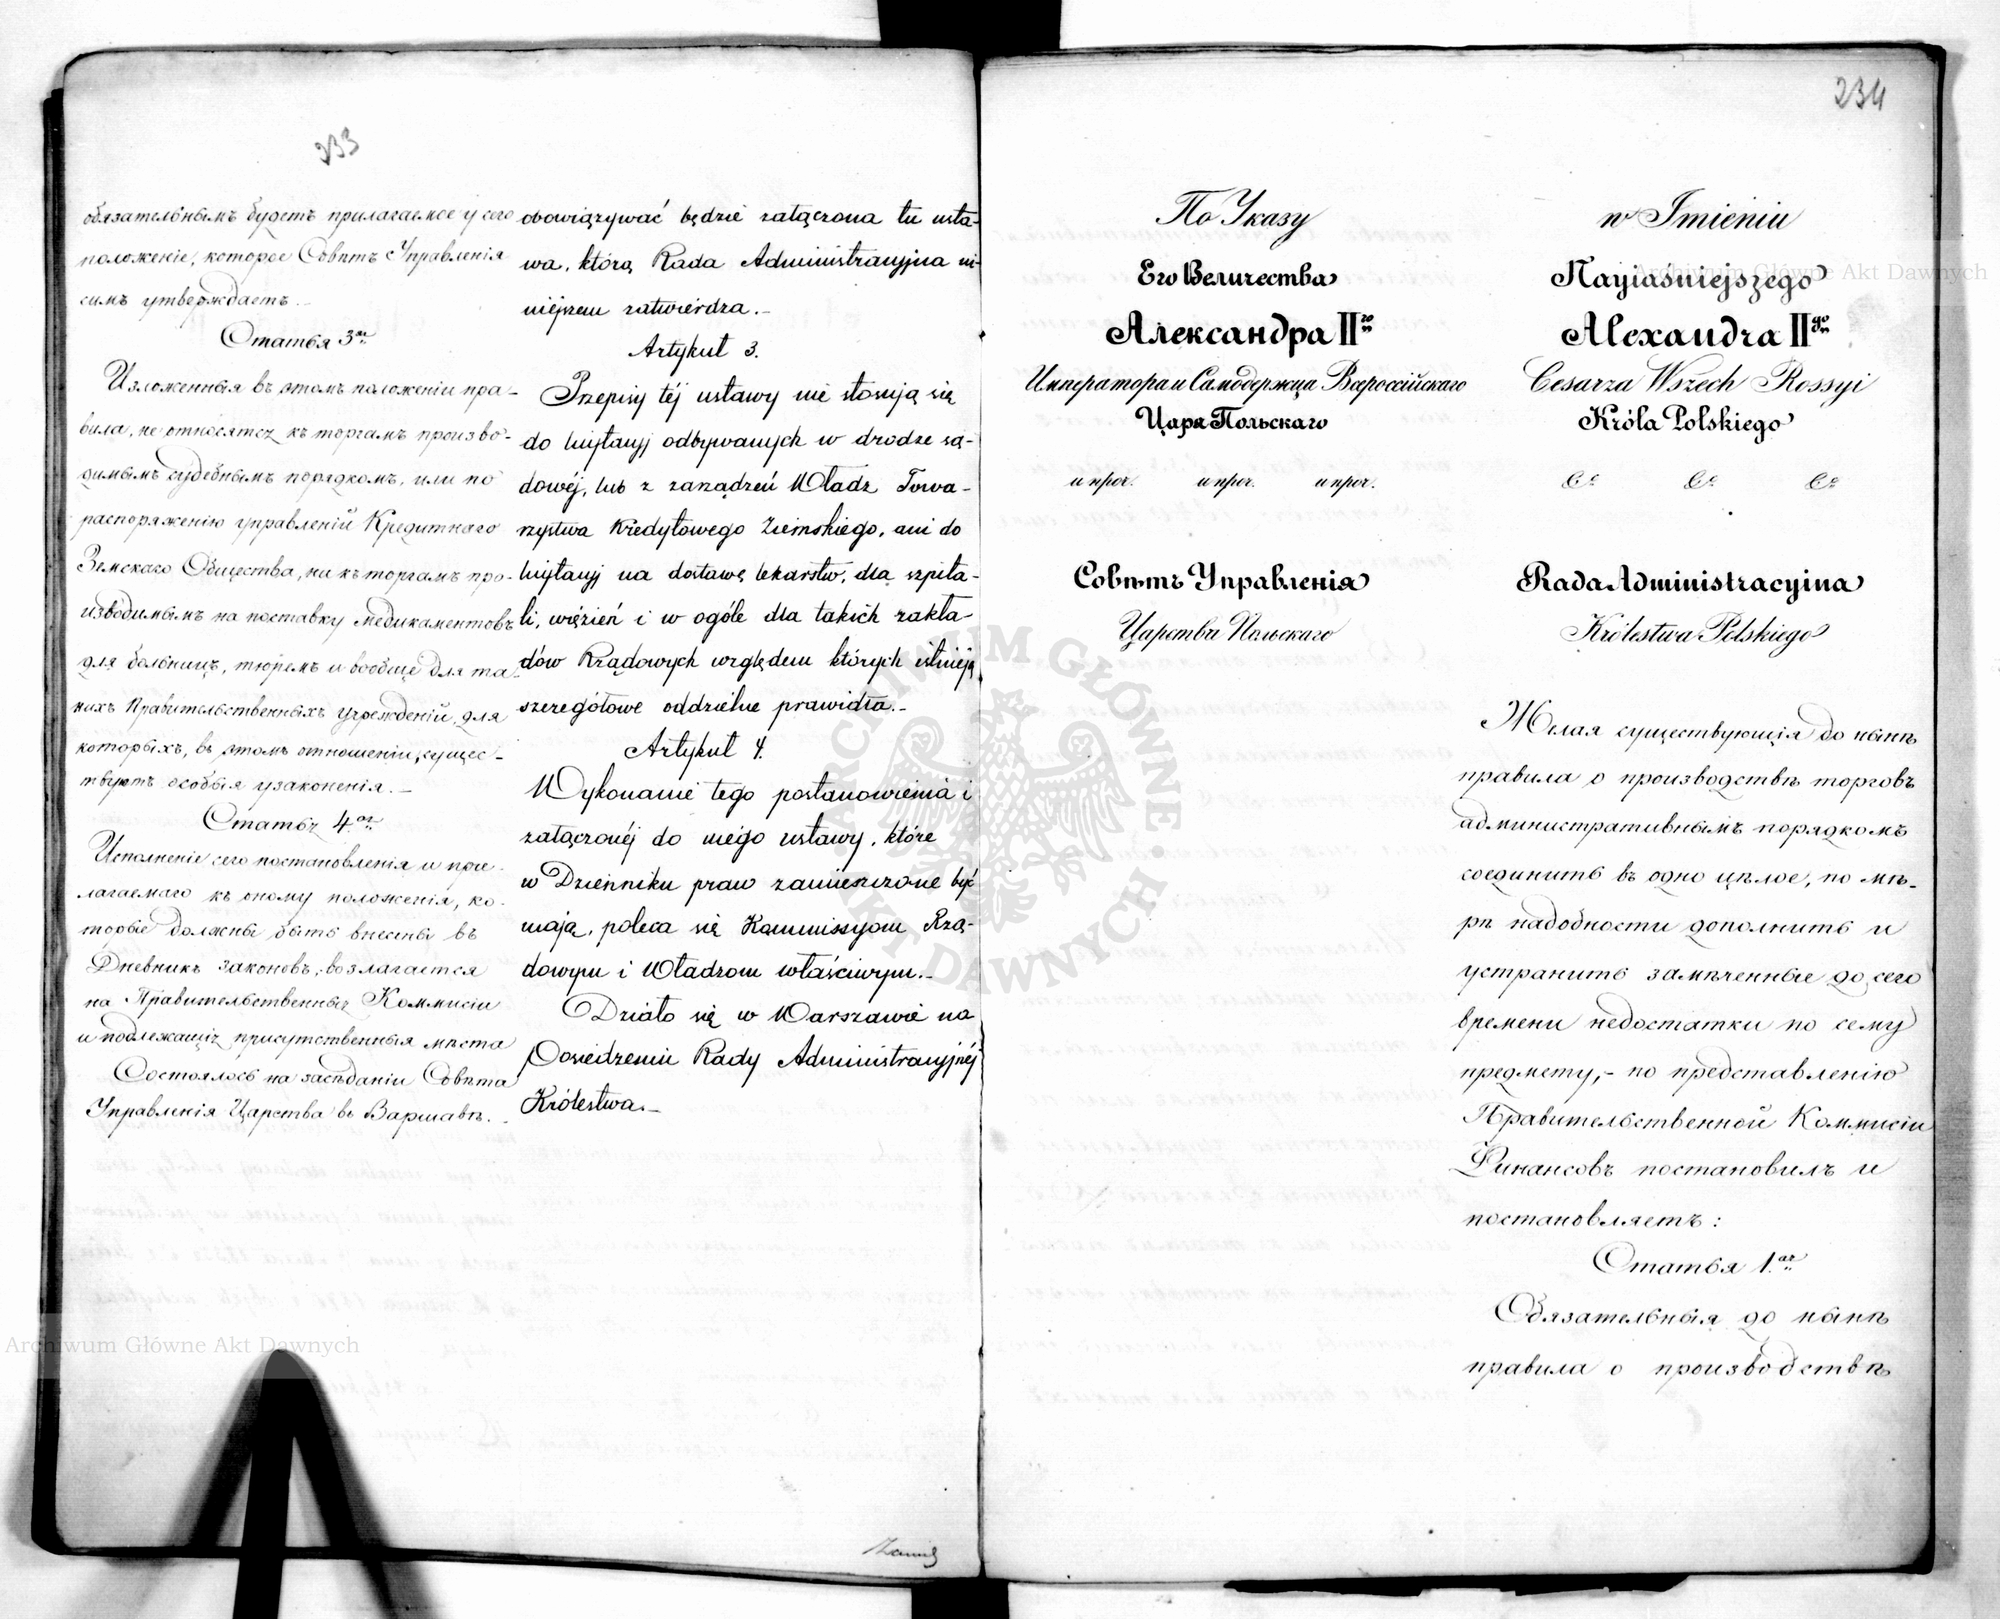 233
обязательнымъ будетъ прилагаемое у сего
положеніе, которое Совѣтъ Управленія
симъ утверждаетъ.
Статья 3ая
Изложенныя въ этомъ положеніи пра-
вила, не относятся къ торгамъ произво-
димымъ судебнымъ порядкомъ, или по
распоряженію управленій Кредитнаго
Земскаго Общества, ни къ торгамъ про-
изводимымъ на поставку медикаментовъ
для больницъ, тюремъ и вообще для та-
кихъ Правительственныхъ учрежденій, для
которыхъ, въ этомъ отношеніи, сущес-
твуютъ особыя узаконенія.
Статья 4ая
Исполненіе сего постановленія и при-
лагаемаго къ оному положенія, ко-
торые должны быть внесены въ
Дневникъ Законовъ, возлагается
на Правительственныя Коммисіи
и подлежащія присутственныя мѣста
Состоялось на засѣданіи Совѣта
Управленія Царства въ Варшавѣ.
obowiązywać będzie załączona tu usta-
wa, którą Rada Administracyjna ni-
niejszem zatwierdza.
Artykuł 3.
Przepisy téj ustawy nie stosują się
do licytacyj odbywanych w drodze są-
dowéj, lub z zarządzeń Władz Towa-
rzystwa Kredytowego Ziemskiego, ani do
licytacyj na dostawę lekarstw, dla szpita-
li, więzień i w ogóle dla takich zakła-
dów Rządowych względem których istnieją
szczegółowe oddzielne prawidła.
Artykuł 4.
Wykonanie tego postanowienia i
załączonéj do niego ustawy, które
w Dzienniku praw zamieszczone być
mają, poleca się Kommissyom Rzą-
dowym i Władzom właściwym.
Działo się w Warszawie na
Posiedzeniu Rady Administracyjnéj
Królestwa.
234
По Указу
Его Величества
Александра IIго
Императора и Самодержца Всероссійскаго
Царя Польскаго
и проч. и проч. и проч.
Совѣтъ Управленія
Царства Польскаго
w Imieniu
Nayiaśniejszego
Alexandra IIgo
Cesarza Wszech Rossyi
Króla Polskiego
&c &c &c
Rada Administracyina
Królestwa Polskiego
Желая существующія до нынѣ
правила о производствѣ торговъ
административнымъ порядкомъ
соединить въ одно цѣлое, по мѣ-
рѣ надобности дополнить и
устранить замѣченные до сего
времени недостатки по сему
предмету,- по представленію
Правительственной Коммисіи
Финансовъ постановилъ и
постановляетъ:
Статья 1ая
Обязательныя до нынѣ
правила о производствѣ
ARCHIWUM GŁÓWNE AKT DAWNYCH
Archiwum Główne Akt Dawnych
Archiwum Główne Akt Dawnych